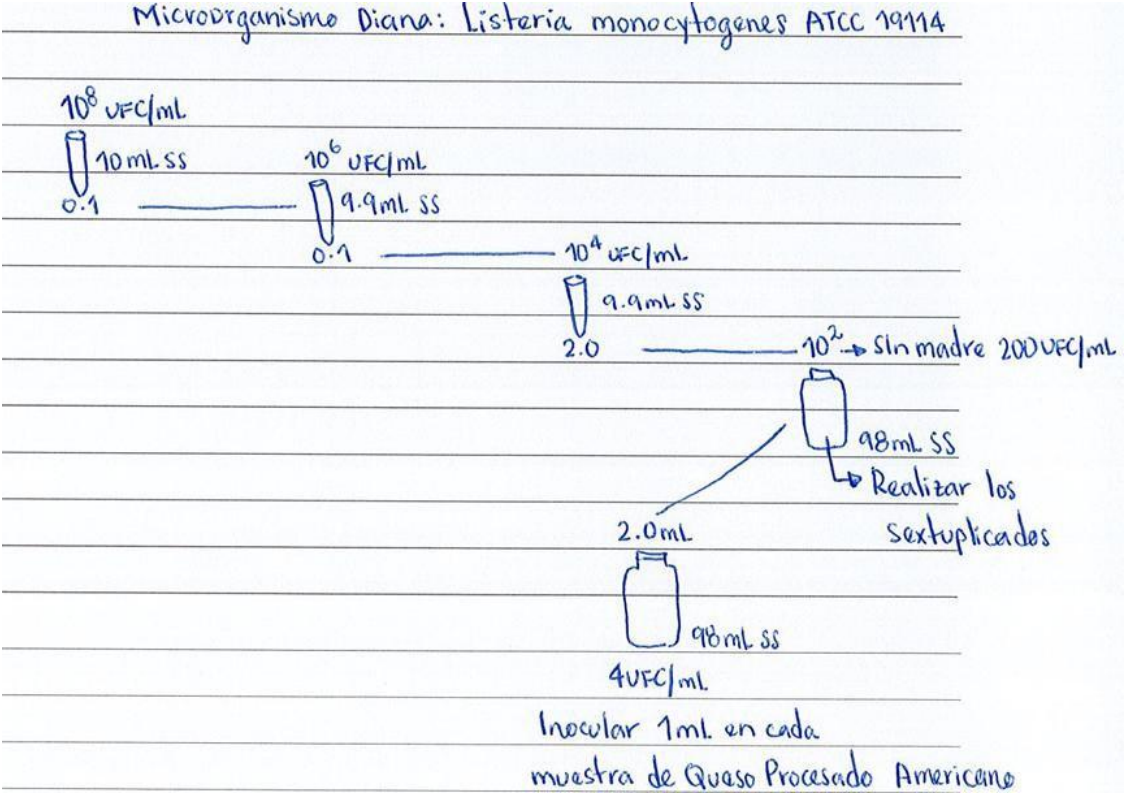 Microorganismo Diana: Listeria monocytogenes ATCC 19114
10⁸ UFC/mL
10 mL SS
0.1
10⁶ UFC/mL
9.9 mL SS
0.1
10⁴ UFC/mL
9.9 mL SS
2.0
10² → Sln madre 200 UFC/mL
98 mL SS
Realizar los
sextuplicados
2.0 mL
98 mL SS
4 UFC/mL
Inocular 1 mL en cada
muestra de Queso Procesado Americano